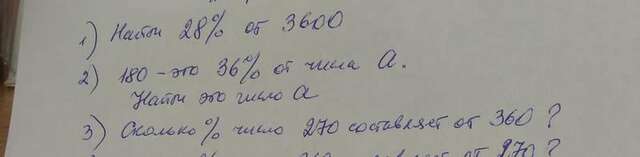 1) Найти 28% от 3600
2) 180 - это 36% от числа а.
Найти это число а
3) Сколько % число 270 составляет от 360?
составляет от 270?